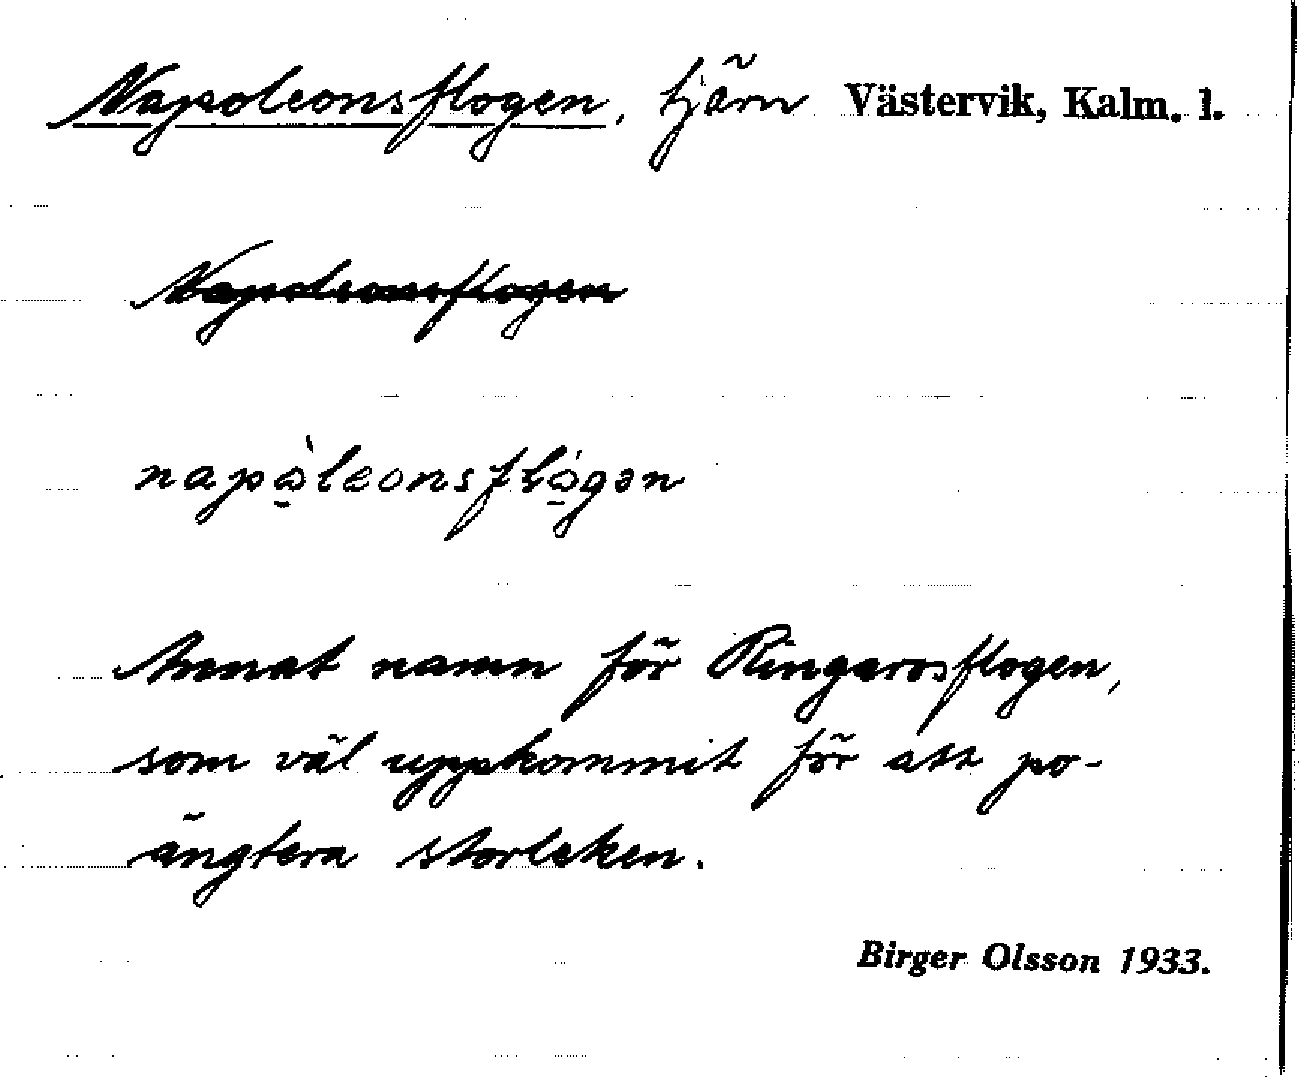 Napoleonsflogen, tjärn Västervik, Kalm. l.
Napoleonsflogen
napὰleonsflágən
Annat namn för Ringarosflogen,
som väl uppkommit för att po-
ängtera storleken.
Birger Olsson 1933.